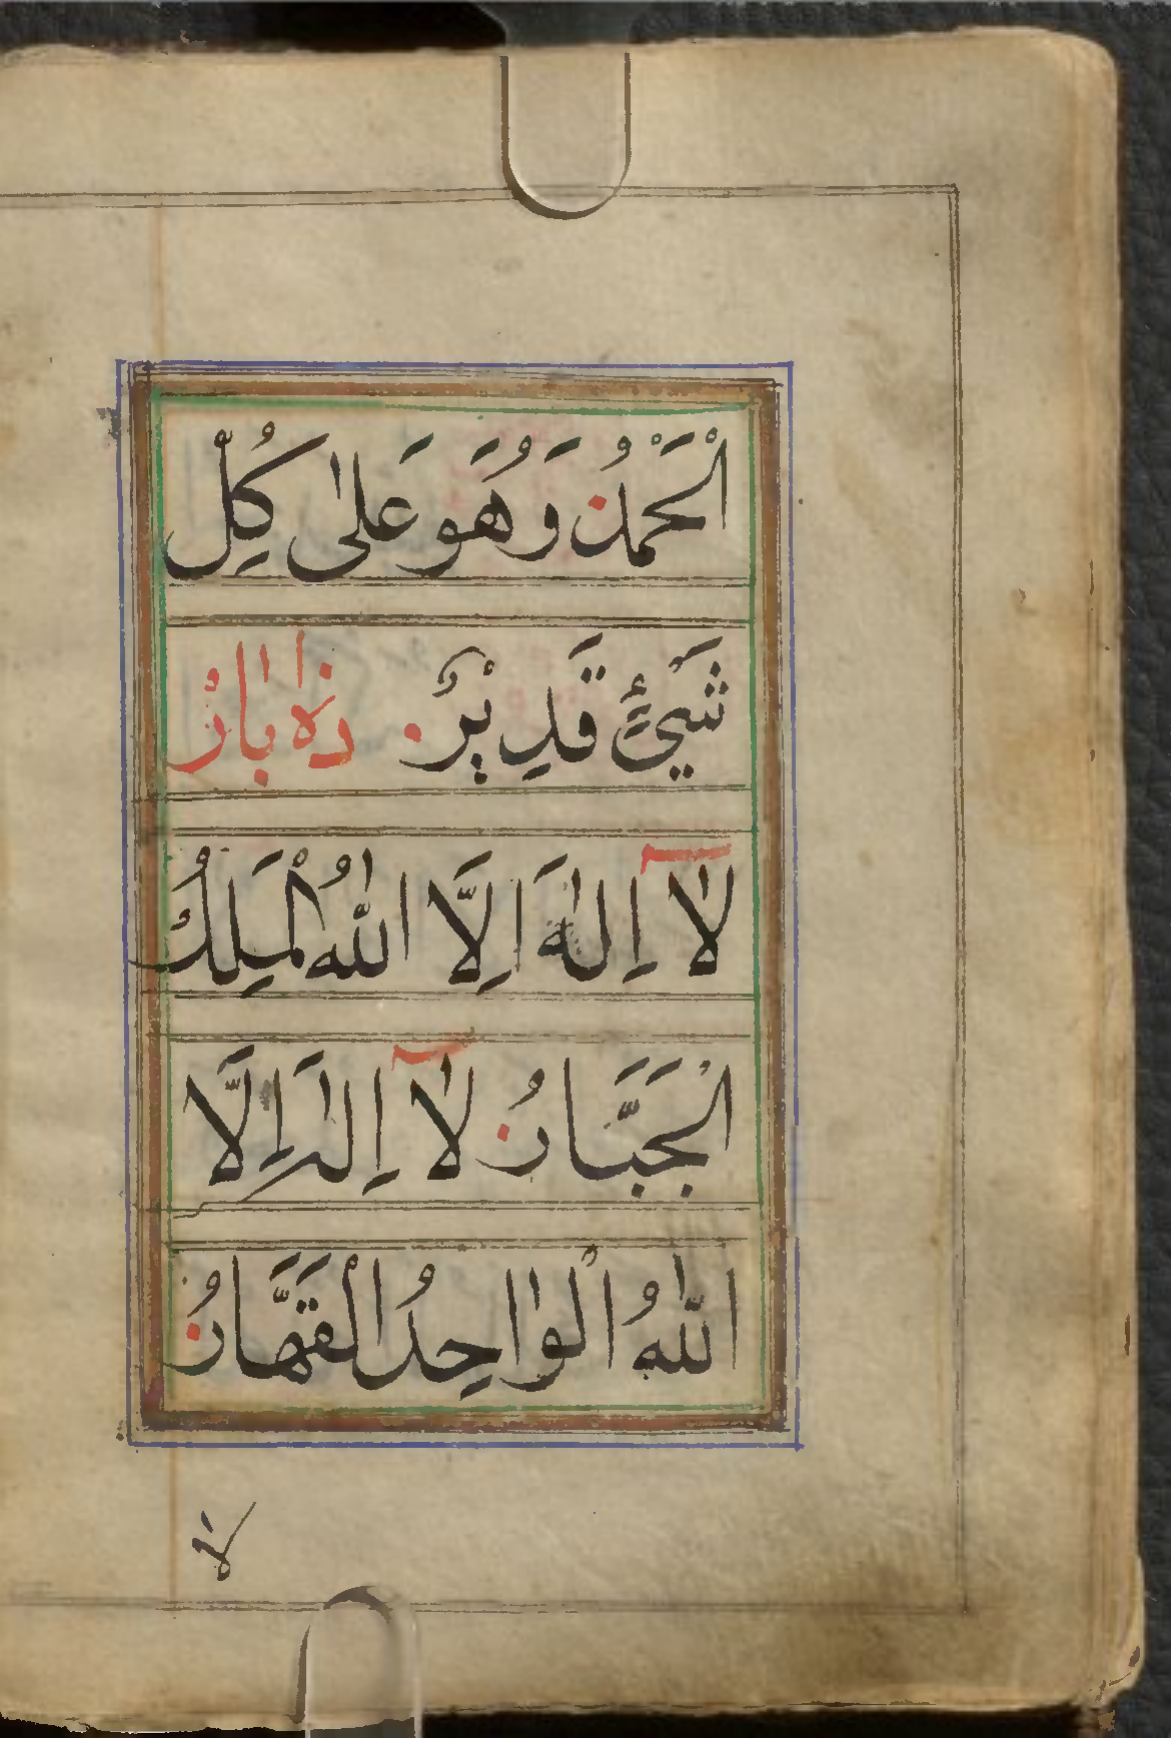 اَلْحَمْدُ وَهُوَ عَلٰى كُلِّ
شَيْئٍ قَدِيْرٌ دٰه بٰارْ
لٰآ اِلٰهَ اِلَّا اللّٰهُ الْمَلِكُ
الْجَبَّارُ لٰآ اِلٰهَ اِلَّا
اللّٰهُ الْوٰاحِدُ الْقَهَّارُ
لآ